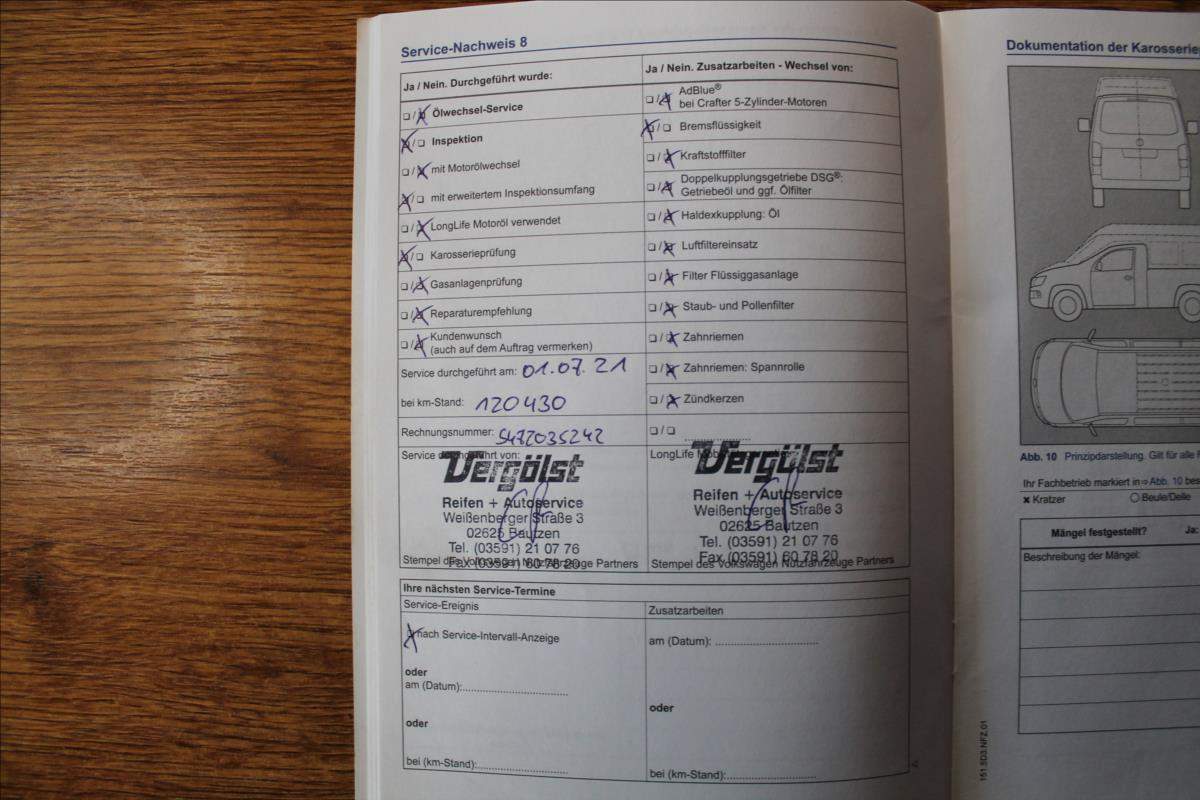 Service-Nachweis 8
Ja / Nein. Durchgeführt wurde:
❏ / ❏ Ölwechsel-Service
❏ / ❏ Inspektion
❏ / ❏ mit Motorölwechsel
❏ / ❏ mit erweitertem Inspektionsumfang
❏ / ❏ LongLife Motoröl verwendet
❏ / ❏ Karosserieprüfung
❏ / ❏ Gasanlagenprüfung
❏ / ❏ Reparaturempfehlung
❏ / ❏ Kundenwunsch
(auch auf dem Auftrag vermerken)
Service durchgeführt am: 01.07.21
bei km-Stand: 120430
Rechnungsnummer: 5472035242
Service durchgeführt von:
Vergölst
Reifen + Autoservice
Weißenberger Straße 3
02625 Bautzen
Tel. (03591) 21 07 76
Fax (03591) 60 78 20
Stempel des Volkswagen Nutzfahrzeuge Partners
Ja / Nein. Zusatzarbeiten - Wechsel von:
❏ / ❏ AdBlue®
bei Crafter 5-Zylinder-Motoren
❏ / ❏ Bremsflüssigkeit
❏ / ❏ Kraftstofffilter
❏ / ❏ Doppelkupplungsgetriebe DSG®:
Getriebeöl und ggf. Ölfilter
❏ / ❏ Haldexkupplung: Öl
❏ / ❏ Luftfiltereinsatz
❏ / ❏ Filter Flüssiggasanlage
❏ / ❏ Staub- und Pollenfilter
❏ / ❏ Zahnriemen
❏ / ❏ Zahnriemen: Spannrolle
❏ / ❏ Zündkerzen
❏ / ❏
LongLife
Vergölst
Reifen + Autoservice
Weißenberger Straße 3
02625 Bautzen
Tel. (03591) 21 07 76
Fax (03591) 60 78 20
Stempel des Volkswagen Nutzfahrzeuge Partners
Ihre nächsten Service-Termine
Service-Ereignis
nach Service-Intervall-Anzeige
oder
am (Datum):
oder
bei (km-Stand):
Zusatzarbeiten
am (Datum):
oder
bei (km-Stand):
Dokumentation der Karosserie
Abb. 10 Prinzipdarstellung. Gilt für alle
Ihr Fachbetrieb markiert in ⇨ Abb. 10 bes
✖ Kratzer ○ Beule/Delle
Mängel festgestellt? Ja:
Beschreibung der Mängel:
151.5D3.NFZ.01